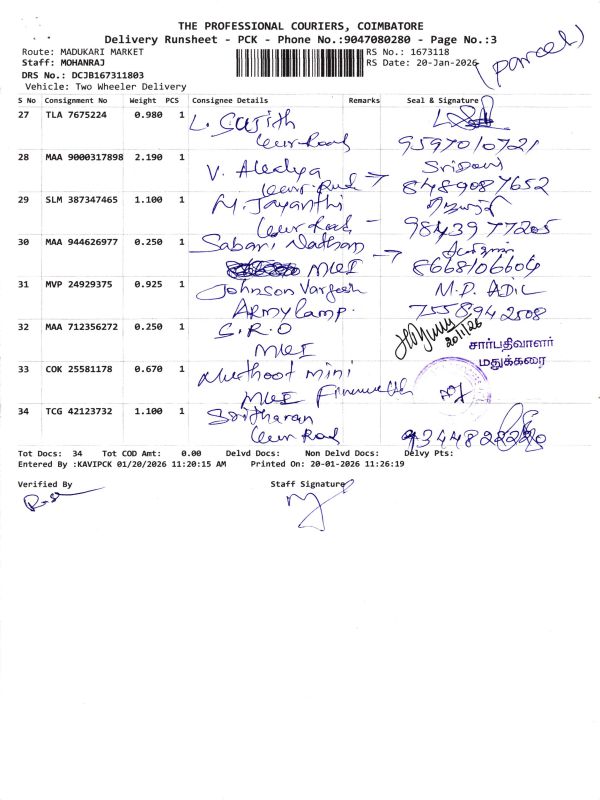 THE PROFESSIONAL COURIERS, COIMBATORE
Delivery Runsheet - PCK - Phone No.:9047080280 - Page No.:3
Route: MADUKARI MARKET
RS No.: 1673118
Staff: MOHANRAJ
RS Date: 20-Jan-2026
(parcel)
DRS No.: DCJB167311803
Vehicle: Two Wheeler Delivery
S No Consignment No Weight PCS Consignee Details Remarks Seal & Signature
27 TLA 7675224 0.980 1 L. Sajith
9597010721
28 MAA 9000317898 2.190 1 V.
8489087652
29 SLM 387347465 1.100 1 M. Jayanthi
Road - 9843977205
30 MAA 944626977 0.250 1 Sabari Nathan
MKI 8668106604
31 MVP 24929375 0.925 1 Johnson Vargeesh M.P. ADIL
Army Camp. 7558942508
32 MAA 712356272 0.250 1 S.R.O 20/1/26
MKI
சார்பதிவாளர்
மதுக்கரை
33 COK 25581178 0.670 1 Muthoot mini
MKI
34 TCG 42123732 1.100 1 Sridharan
Road 9344822220
Tot Docs: 34 Tot COD Amt: 0.00 Delvd Docs: Non Delvd Docs: Delvy Pts:
Entered By :KAVIPCK 01/20/2026 11:20:15 AM Printed On: 20-01-2026 11:26:19
Verified By Staff Signature